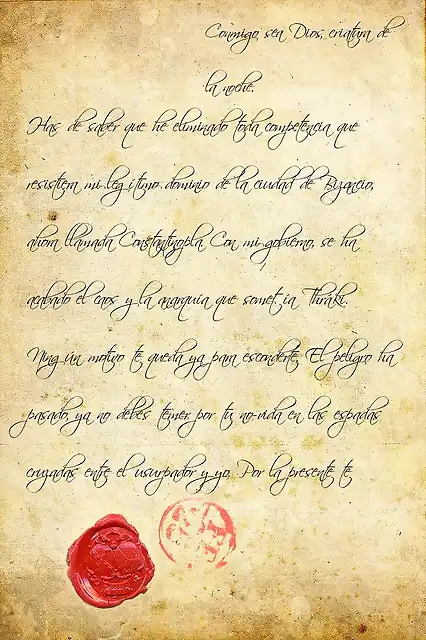 Conmigo, sea Dios, criatura de
la noche.
Has de saber que he eliminado toda competencia que
resistiera mi legítimo dominio de la ciudad de Bizancio,
ahora llamada Constantinopla. Con mi gobierno, se ha
acabado el caos y la anarquía que sometía Thraki.
Ningún motivo te queda ya para esconderte. El peligro ha
pasado, ya no debes temer por tu no-vida en las espadas
cruzadas entre el usurpador y yo. Por la presente te